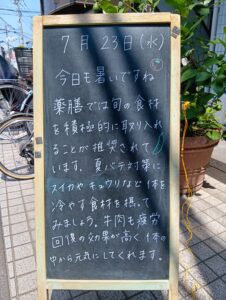 7月23日(水)
今日も暑いですね
薬膳では旬の食材
を積極的に取り入れ
ることが推奨されて
います。夏バテ対策に
スイカやキュウリなど体を
冷やす食材を摂って
みましょう。牛肉も疲労
回復の効果が高く体の
中から元気にしてくれます。